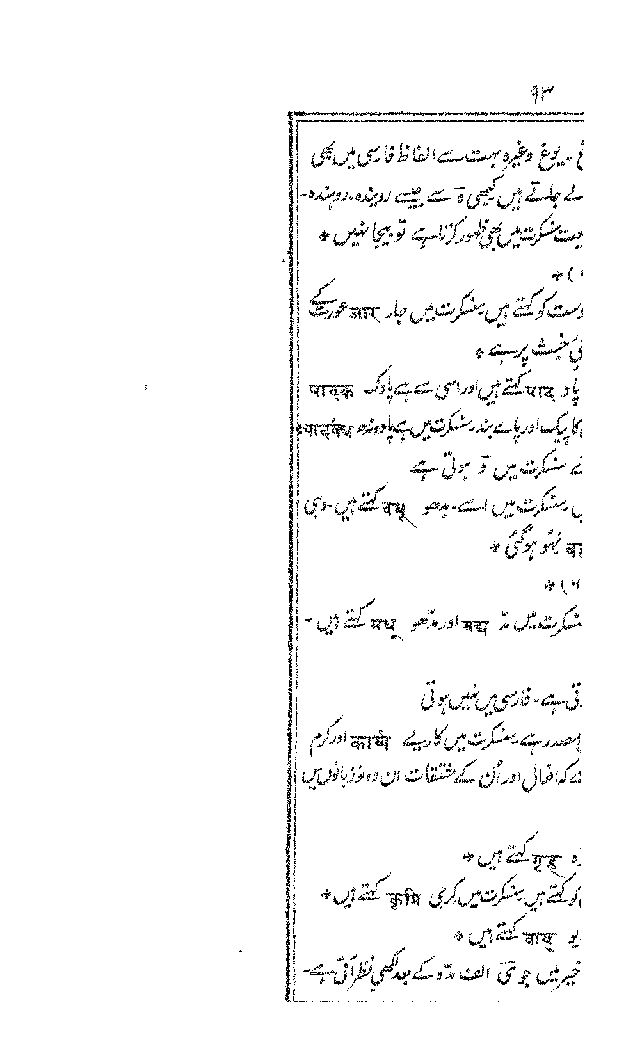 ۹۳
غ۔ یوغ وغیرہ بہت سے الفاظ فارسی میں بھی
لے جاتے ہیں کبھی ہ سے جیسے روندہ۔ روہندہ۔
سنسکرت میں بھی ظہور کرتا ہے تو بیجا نہیں *
) *
دوست کو کہتے ہیں سنسکرت میں جار जार عورت کے
خبث پر ہے *
پاد पाद کہتے ہیں اور اسی سے ہے پادک पादक
کا پیک اور پاے بند سنسکرت میں ہے پادبندہ पादबंध *
سنسکرت میں و ہوتی ہے
سنسکرت میں اسے۔ بدھو बधू کہتے ہیں۔ وہی
बा بہو ہوگئی *
) *
سنسکرت میں مد मद्य اور مدھو मधु کہتے ہیں۔
تی ہے۔ فارسی میں نہیں ہوتی
مصدر ہے سنسکرت میں کاریے कार्य اور کرم
ے کہ افعال اور اُن کے مشتقات ان دونو زبانوں میں
ہ गृह کہتے ہیں *
کو کہتے ہیں سنسکرت میں کرمی कृमि کہتے ہیں *
یو वायु کہتے ہیں *
اخیر میں جو ی الف مدّہ کے بعد لکھی نظر آتی ہے۔